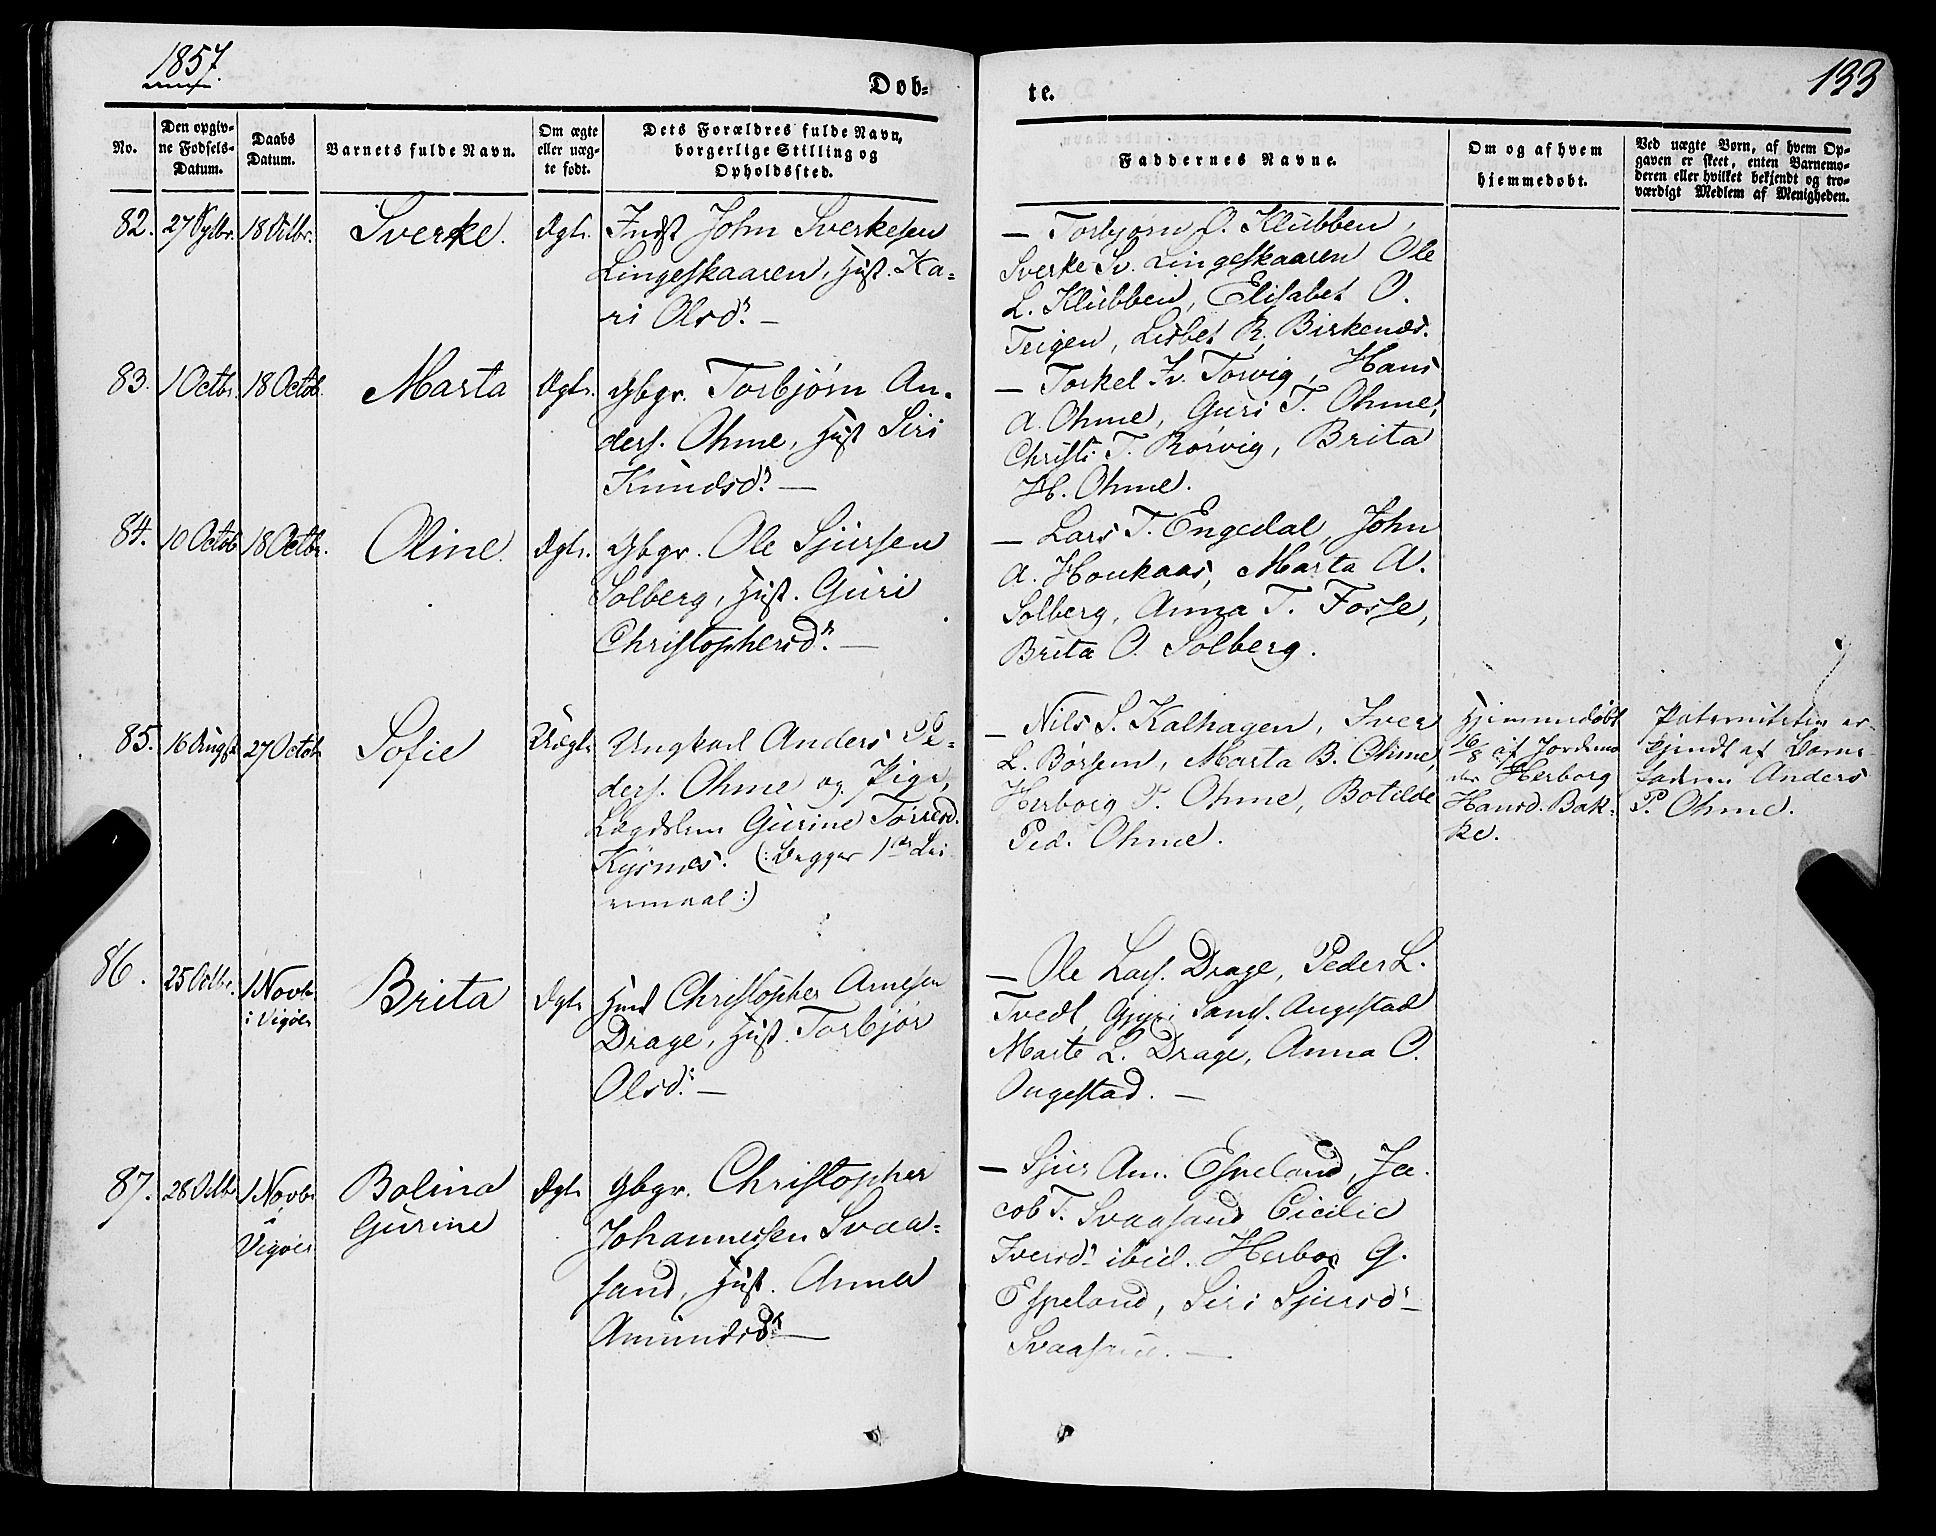 1857.
Døb-
te.
133
No.
Den opgiv-
ne Fødsels-
Datum.
Daabs
Datum.
Barnets fulde Navn.
Om ægte
eller uæg-
te født.
Dets Forældres fulde Navn,
borgerlige Stilling og
Opholdssted.
Faddernes Navne.
Om og af hvem
hjemmedøbt.
Ved uægte Børn, af hvem Op-
gaven er skeet, enten Barnemo-
deren eller hvilket bekjendt og tro-
værdigt Medlem af Menigheden.
82. 27 18 Octbr. Sverke. Ægte.
Indst John Sverkesen
Lingeskaaren, Hust. Ka-
ri Olsdr. —
— Torbjørn O. Klubben,
Sverke Sv. Lingeskaaren Ole
L. Klubben, Elisabet O.
Teigen, Lisbet R. Birkenæs.
83. 1 Octbr. 18 Octob. Marta Ægte.
Gbgr. Torbjørn An-
ders. Ohme, Hust Siri
Knudsdr. —
— Torkel Iv. Torvig, Hans
A. Ohme, Guri T. Ohme,
Christi T. Rørvig, Brita
H. Ohme.
84. 10 Octob 18 Octbr. Oline. Ægte.
Gbgr. Ole Sjursen
Solberg, Hust. Guri
Christophersdr. —
— Lars T. Engedal, John
A. Houkaas, Marta A.
Solberg, Anna T. Fosse,
Brita O. Solberg.
85. 16 Augst 27 Octob Sofie Uægte
Ungkarl Anders Pe-
ders. Ohme og Pige,
Lægdslem Gurine Torresd.
Kysnæs. (: Begges 1ste Lei-
ermaal :)
— Nils S. Kalhagen, Iver
L. Børsem, Marta B. Ohme,
Herborg P. Ohme, Botilde
Ped. Ohme.
Hjemmedøbt
16/8 af Jordemo
der Herborg
Hansd. Bak-
ke.
Paterniteten er-
kjendt af Barne-
faderen Anders
P. Ohme.
86. 25 Octbr. 1 Novbr
i Vigøer
Brita Ægte
Hmd Christopher Arnesen
Drage, Hust. Torbjør
Olsdr. —
— Ole Lars. Drage, Peder L.
Tvedt, Sams. Angestad
Marte L. Drage, Anna O.
Angestad. —
87. 28 Octbr 1 Novbr
Vigøer
Bolina
Gurine
Ægte
Gbgr. Christopher
Johannessen Svaa-
sand, Hust. Anna
Amundsdr. —
— Sjur Am. Espeland, Ja-
cob T. Svaasand Cicilie
Iversdr ibid. Herbor G.
Espeland, Siri Sjursdr
Svaasand. —